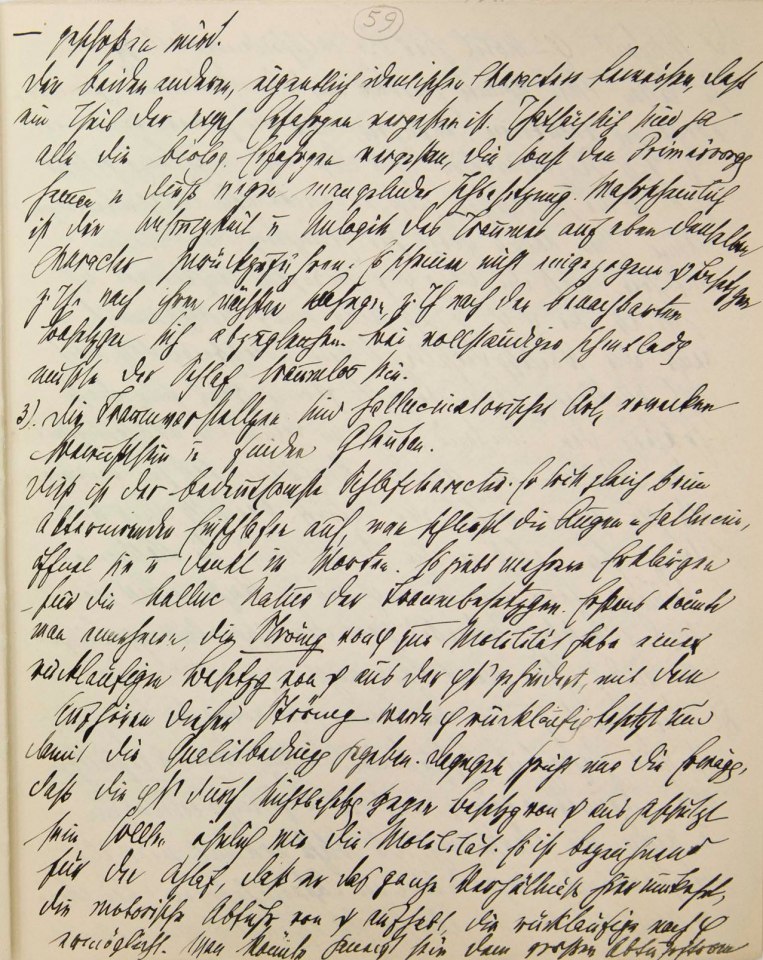 59
— geschoßen wird.
Die beiden anderen, eigentlich identischen Charactere beweisen, daß
ein Theil der psych Erfahrgen vergeßen ist. Thatsächlich sind ja
alle die biolog. Erfahrgen vergeßen, die sonst den Primärvorg
hemmen u dieß wegen mangelnder Ichbesetzung. Wahrscheinlich
ist die Unsinnigkeit u Unlogik des Traumes auf eben denselben
Character zurückzuführen. Es scheinen nicht eingezogene ψ Besetzgen
z. Th. nach ihren nächsten Bahngen, z. Th nach den benachbarten
Besetzgen sich abzugleichen. Bei vollständiger Ichentladg
müßte der Schlaf traumlos sein.
3). Die Traumvorstellgen sind hallucinatorischer Art, erwecken
Bewußtsein u finden Glauben.
Dieß ist der bedeutsamste Schlafcharacter. Er tritt gleich beim
alternirenden Einschlafen auf, man schließt die Augen u hallucin,
öffnet sie u denkt in Worten. Es giebt mehrere Erklärgen
für die halluc Natur der Traumbesetzgen. Erstens könnte
man annehmen, die Ströing von φ zur Motilität habe einer
rückläufigen Besetzg von ψ aus der φN gehindert, mit dem
Aufhören dieser Ströing werde φ rückläufig besetzt und
damit die Qualitbedingg gegeben. Dagegen spricht nur die Erwägg,
daß die φN durch Nichtbesetzg gegen Besetzg von ψ aus geschützt
sein sollte ähnlich wie die Motilität. Es ist bezeichnend
für den Schlaf, daß er das ganze Verhältniß hier umkehrt,
die motorische Abfuhr von ψ aufhebt, die rückläufige nach φ
ermöglicht. Man könnte den großen Abfuhrstrom